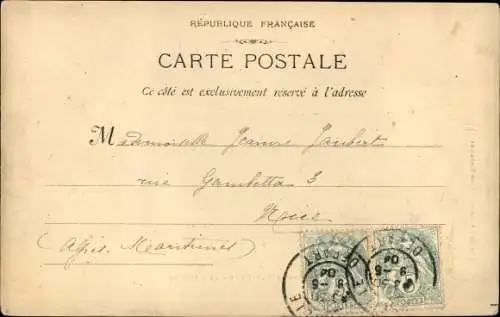 RÉPUBLIQUE FRANÇAISE
CARTE POSTALE
Ce côté est exclusivement réservé à l'adresse
Mademoiselle Jeanne Jaubert
rue Gambetta 3
Nice
(Alpes Maritimes)
DEPART DEPART
9-6 9-6
04 04